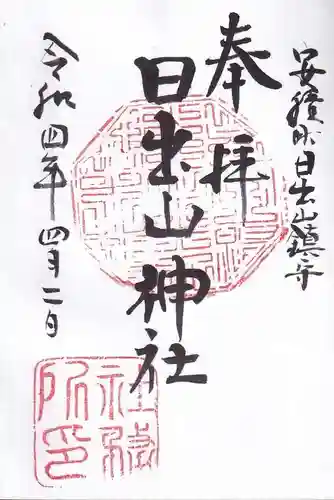 安積町日出山鎮守
奉拝
日出山神社
令和四年四月二日
社務
所印